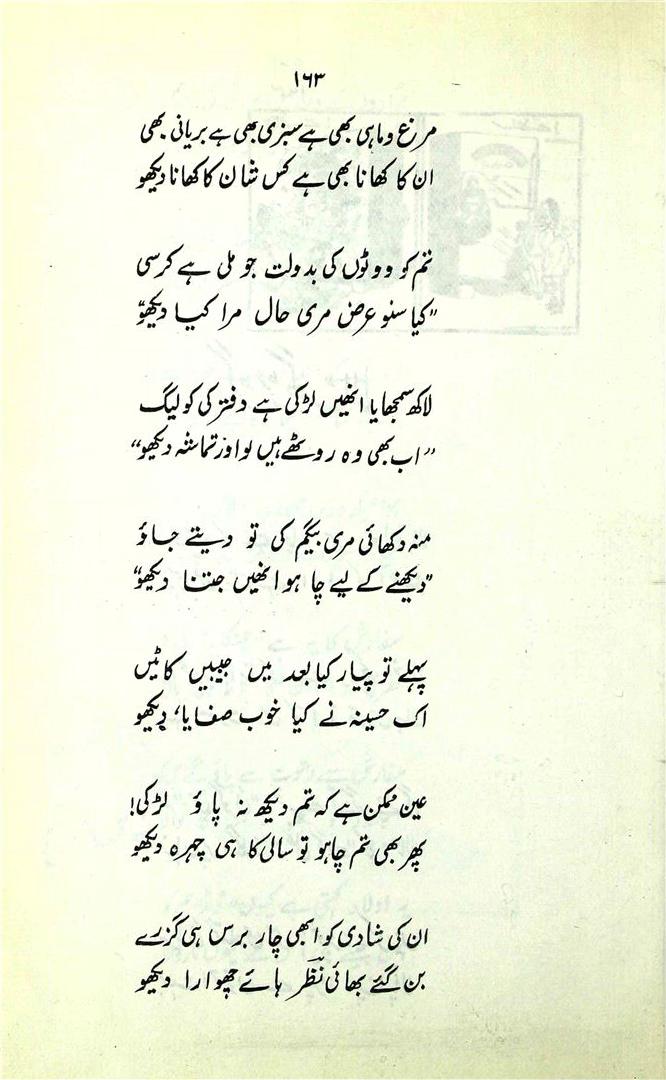 ۱۶۳
مرغ و ماہی بھی ہے سبزی بھی ہے بریانی بھی
ان کا کھانا بھی ہے کس شان کا کھانا دیکھو
تم کو ووٹوں کی بدولت جو ملی ہے کرسی
"کیا سنو عرض مری حال مرا کیا دیکھو"
لاکھ سمجھایا انھیں لڑکی ہے دفتر کی کولیگ
"اب بھی وہ روٹھے ہیں لو اور تماشہ دیکھو"
منہ دکھائی مری بیگم کی تو دیتے جاؤ
"دیکھنے کے لیے چاہو انھیں جتنا دیکھو"
پہلے تو پیار کیا بعد میں جیبیں کاٹیں
اک حسینہ نے کیا خوب صفایا، دیکھو
عین ممکن ہے کہ تم دیکھ نہ پاؤ لڑکی!
پھر بھی تم چاہو تو سالی کا ہی چہرہ دیکھو
ان کی شادی کو ابھی چار برس ہی گزرے
بن گئے بھائی نظرؔ ہائے چھوارا دیکھو